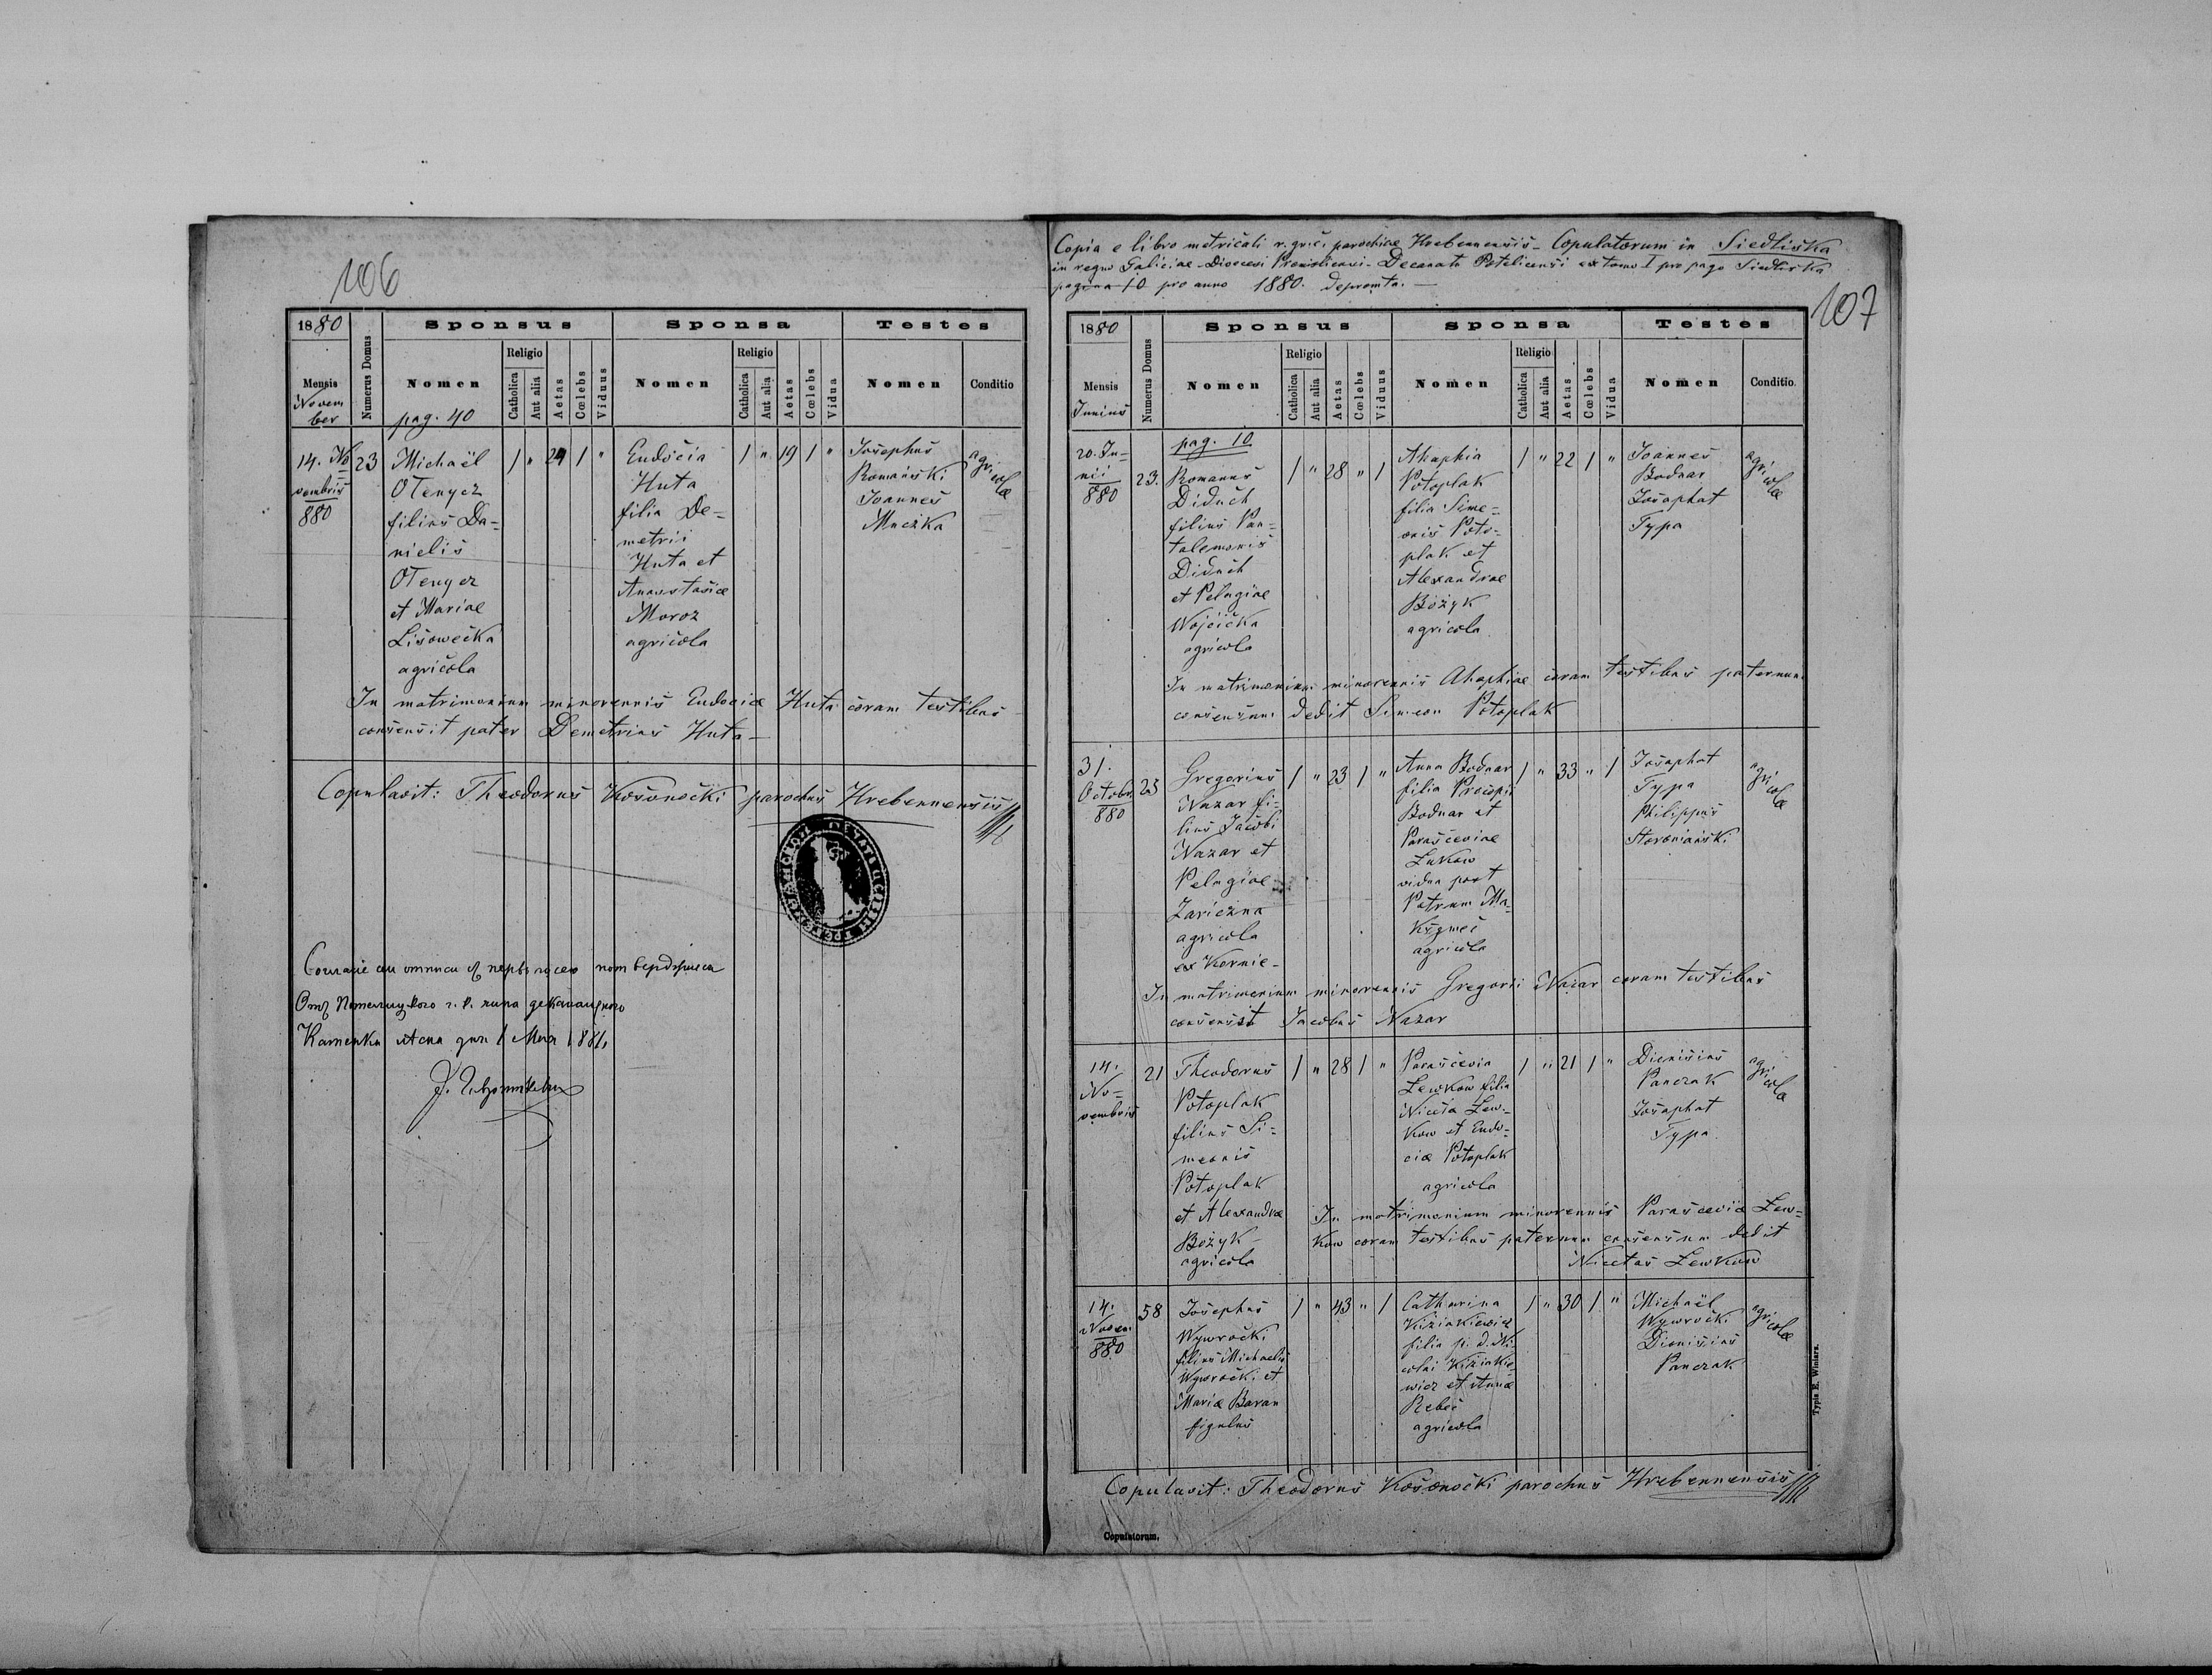 106
1880
Sponsus
Sponsa
Testes
Mensis
Novem
ber
Numerus Domus
Nomen
pag. 40
Religio
Catholica
Aut alia
Aetas
Cœlebs
Viduus
Nomen
Religio
Catholica
Aut alia
Aetas
Cœlebs
Vidua
Nomen
Conditio
14. No
vembris
880
23
Michaël
OTenycz
filius Da-
nielis
OTenycz
et Mariae
Lisowečka
agricola
1 " 24 1 "
Eudocia
Huta
filia De-
metrii
Huta et
Anastasiae
Moroz
agricola
1 " 19 1 "
Josephus
Romański
Joannes
Muczka
agri
colae
In matrimonium minorennis Eudociae Huta coram testibus
consensit pater Demetrius Huta
Copulavit: Theodorus Kosonočki parochus Hrebennensis
Камenka дня 1 Мая 1881.
Copia e libro metricali r. gr. c. parochiae Hrebennensis - Copulatorum in Siedliska
in regno Galiciae - Dioecesi Premisliensi - Decanatu Potelicensi ex tomo I pro pago Siedliska
pagina 10 pro anno 1880. depromta. —
107
1880
Sponsus
Sponsa
Testes
Mensis
Junius
Numerus Domus
Nomen
Religio
Catholica
Aut alia
Aetas
Cœlebs
Viduus
Nomen
Religio
Catholica
Aut alia
Aetas
Cœlebs
Vidua
Nomen
Conditio.
pag. 10
20. Ju-
nii
880
23.
Romanus
Diduch
filius Pan-
talemonis
Diduch
et Pelagiae
Wojcička
agricola
1 " 28 " 1
Ahaphia
Potoplak
filia Sime-
onis Poto-
plak et
Alexandrae
Bożyk
agricola
1 " 22 1 "
Joannes
Bodnar
Josaphat
Typa
agri
colae
In matrimonium minorennis Ahaphiae coram testibus paternum
consensum dedit Simeon Potoplak
31.
Octobr.
880
23
Gregorius
Nazar fi-
lius Jacobi
Nazar et
Pelagiae
Zariczna
agricola
ex Kornie-
1 " 23 1 "
Anna Bodnar
filia Procopii
Bodnar et
Parasceviae
Lukow
vidua post
Petrum Ma-
ksymec
agricola
1 " 33 " 1
Josaphat
Typa
Philippus
Staroniański
agri
colae
In matrimonium minorennis Gregorii Nazar coram testibus
consensit Jacobus Nazar
14.
No-
vembris
21
Theodorus
Potoplak
filius Si-
meonis
Potoplak
et Alexandrae
Bożyk
agricola
1 " 28 1 "
Parascevia
Lewkow filia
Niceta Lew-
kow et Eudo-
ciae Potoplak
agricola
1 " 21 1 "
Dionisius
Panczak
Josaphat
Typa
agri
cola
In matrimonium minorennis Parasceviae Lew-
kow coram testibus paternum consensum dedit
Nicetas Lewkow
14.
Novem
880
58
Josephus
Wywročki
filius Michaelis
Wywročki et
Mariae Baran
figulus
1 " 43 " 1
Catharina
Kiziakiewicz
filia p. d. Ni
colai Kiziakie
wicz et Annae
Rebeć
agricola
1 " 30 1 "
Michaël
Wywročki
Dionisius
Panczak
agri
colae
Copulavit: Theodorus Kosonočki parochus Hrebennensis
Copulatorum.
Typis E. Winiarz.